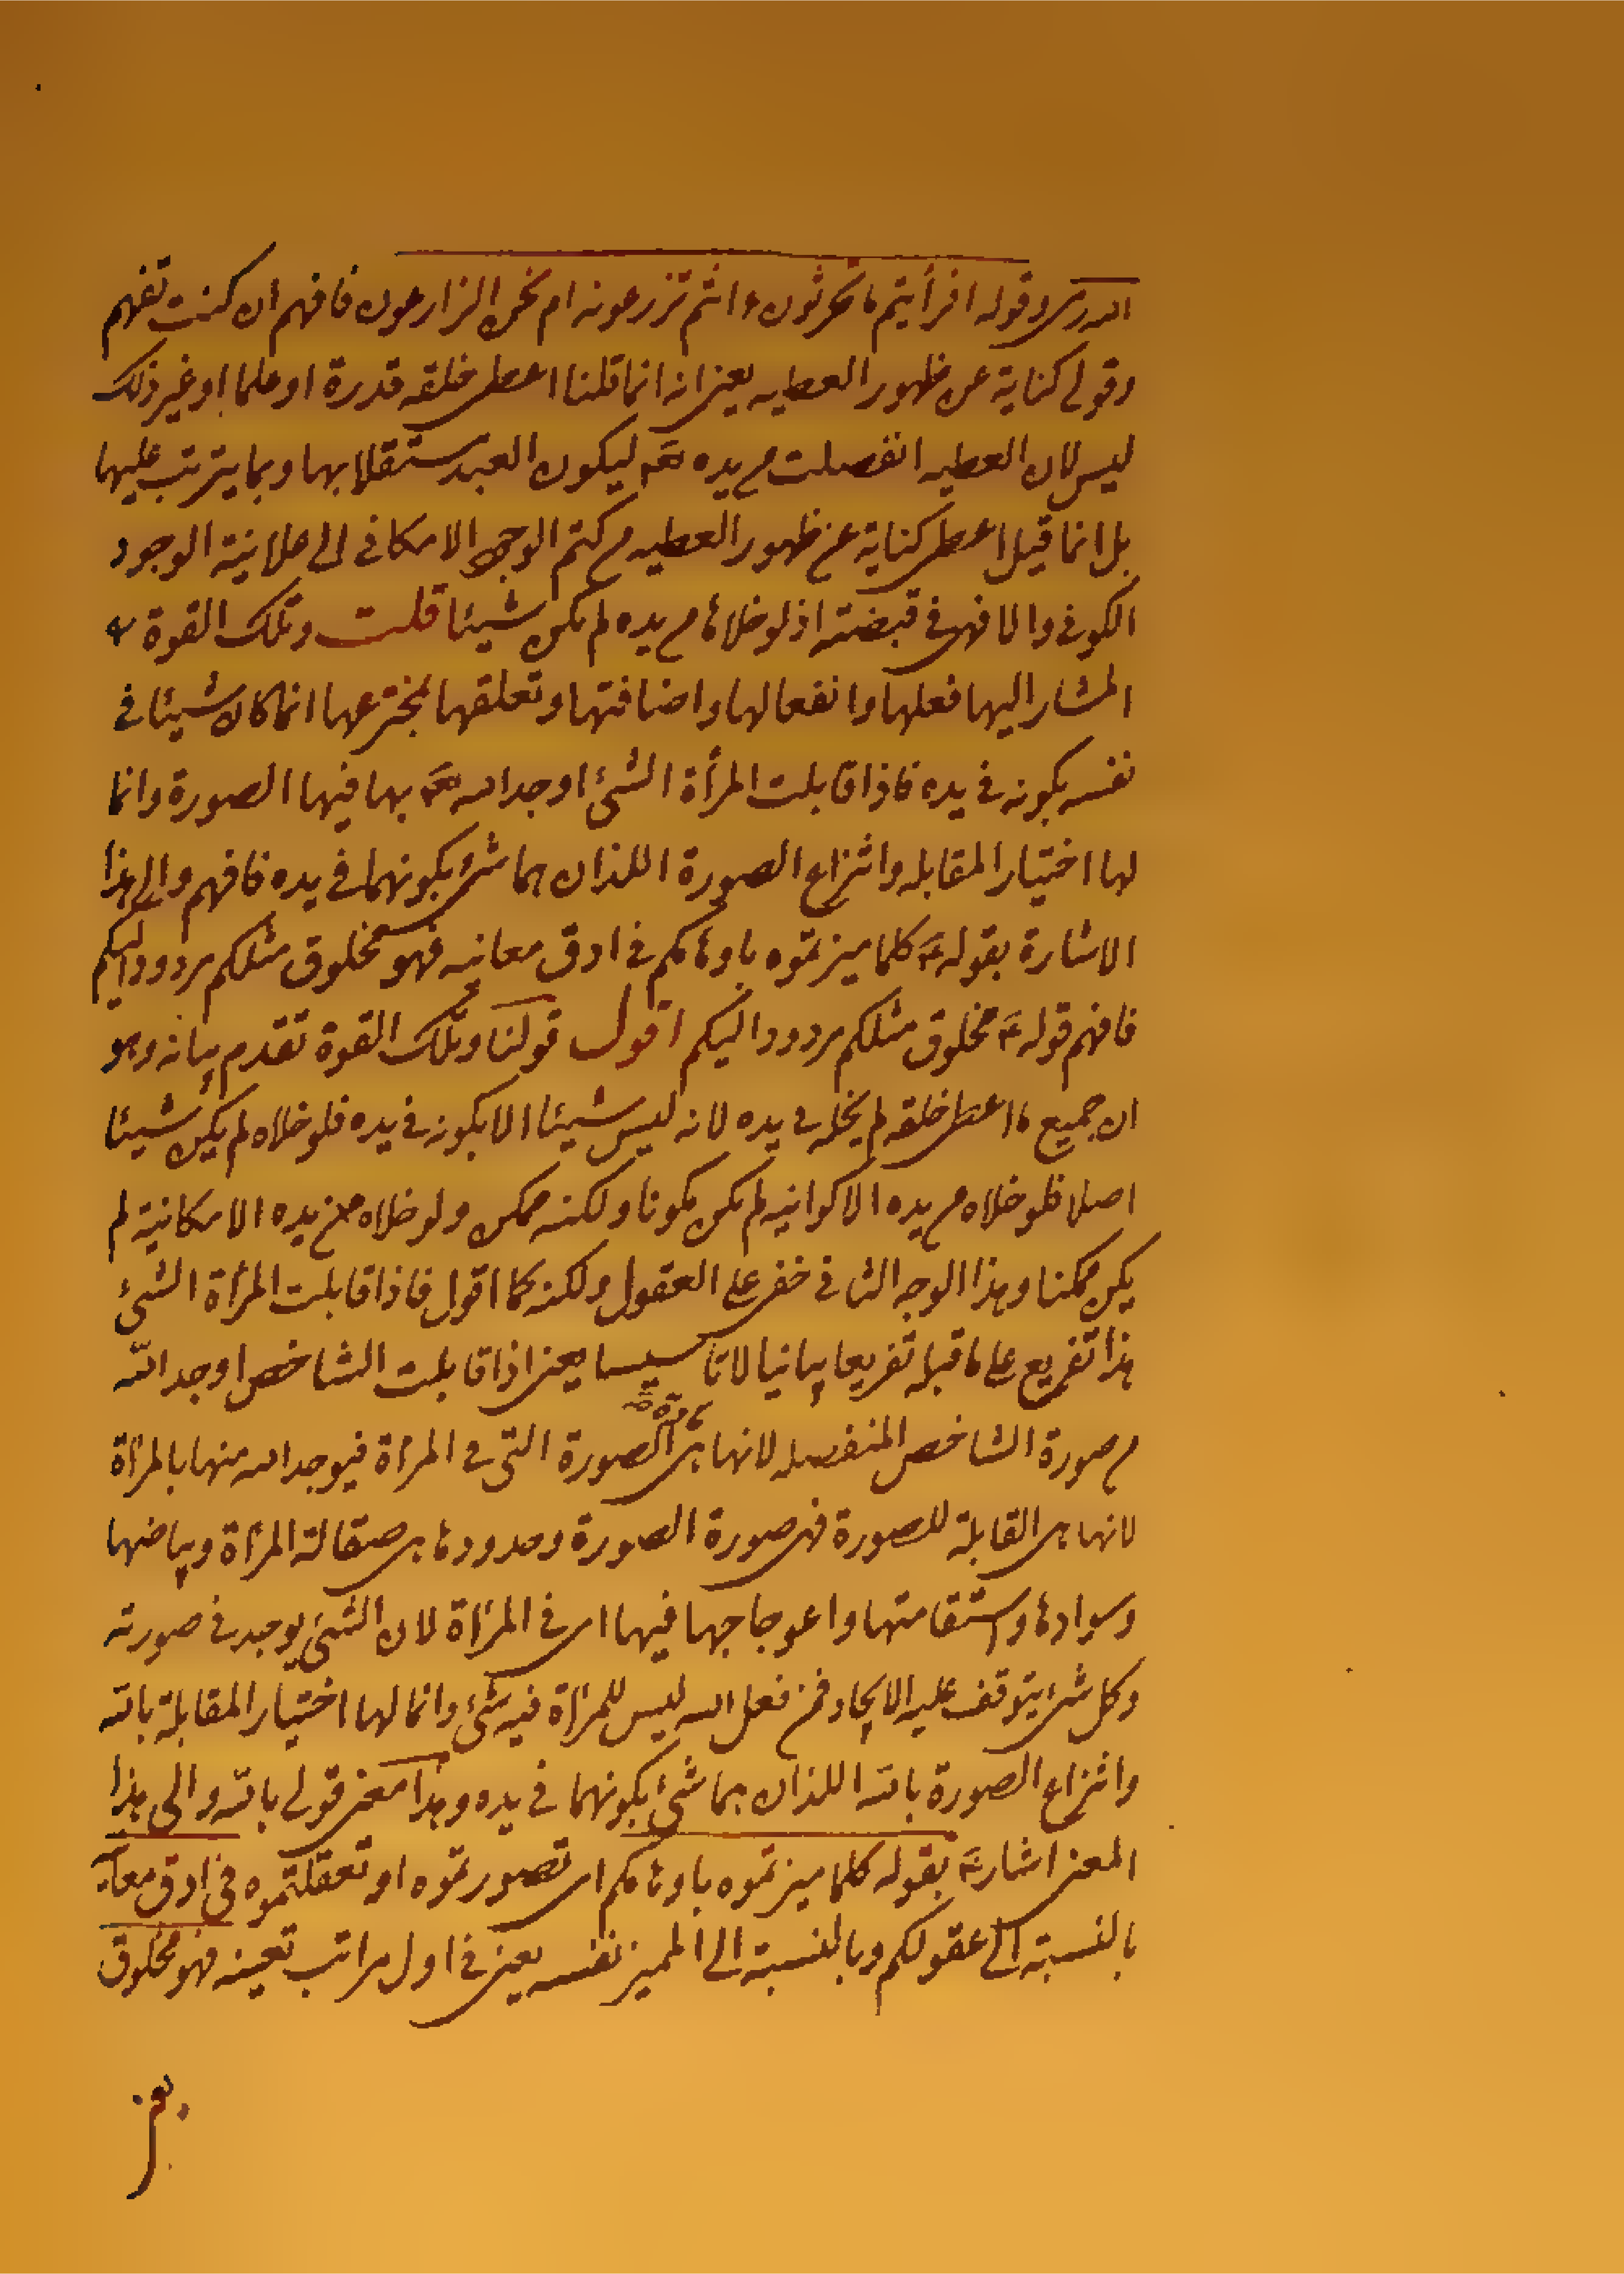 الله رمى وقوله افرأيتم ما تحرثون ءانتم تزرعونه ام نحن الزارعون فافهم ان كنت تفهم
وقولي كناية عن ظهور العطيه يعني انه انما قلنا اعطى خلقه قدرة او علما او غير ذلك
ليس لان العطيه انفصلت من يده تعه ليكون العبد مستقلا بها وبما يترتب عليها
بل انما قيل اعطى كناية عن ظهور العطيه من كتم الوجود الامكاني الى علانية الوجود
الكوني والا فهي في قبضته اذ لو خلاها من يده لم تكن شيئا قلت وتلك القوة
المشار اليها فعلها وانفعالها واضافتها وتعلقها بمخترعها انما كان شيئا في
نفسه بكونه في يده فاذا قابلت المرأة الشئ اوجد الله تعه بها فيها الصورة وانما
لها اختيار المقابله وانتزاع الصورة اللذان هما شئ بكونهما في يده فافهم والى هذا
الاشارة بقوله ع كلما ميزتموه باوهامكم في ادق معانيه فهو مخلوق مثلكم مردود اليكم
فافهم قوله ع مخلوق مثلكم مردود اليكم اقول قولنا وتلك القوة تقدم بيانه وهو
ان جميع ما اعطى خلقه لم يخله من يده لانه ليس شيئا الا بكونه في يده فلو خلاه لم يكن شيئا
اصلا فلو خلاه من يده الاكوانيه لم يكن مكونا ولكنه ممكن ولو خلاه من يده الامكانية لم
يكن ممكنا وهذا الوجه الثاني خفي على العقول ولكنه كما اقول فاذا قابلت المرأة الشئ
هذا تفريع على ما قبله تفريعا بيانيا لا تأسيسا يعني اذا قابلت الشاخص اوجد الله
من صورة الشاخص المنفصله لانها هي الصورة التي في المرءاة فيوجد الله منها بالمرءاة
لانها هي القابلة للصورة فهي صورة الصورة وحدودها هي صقالة المرءاة وبياضها
وسوادها واستقامتها واعوجاجها فيها اى في المرءاة لان الشئ يوجد في صورته
وكل شئ يتوقف عليه الايجاد فمن فعل الله ليس للمرءاة فيه شئ وانما لها اختيار المقابلة بالله
وانتزاع الصورة بالله اللذان هما شئ بكونهما في يده وهذا معنى قولي بالله والى هذا
المعنى اشار ع بقوله كلما ميزتموه باوهامكم اى تصورتموه او تعقلتموه في ادق معانيه
بالنسبة الى عقولكم وبالنسبة الى المميز نفسه يعني في اول مراتب تعينه فهو مخلوق
يعني